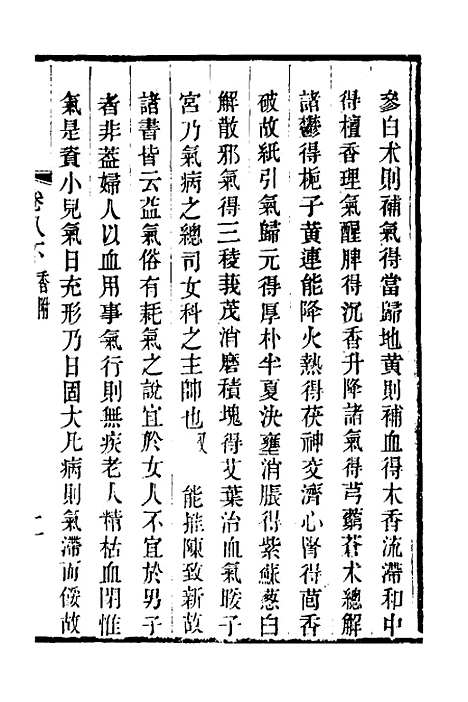 參白术則補氣得當歸地黃則補血得木香流滯和中
得檀香理氣醒脾得沉香升降諸氣得芎藭蒼术總解
諸鬱得梔子黃連能降火熱得茯神交濟心腎得茴香
破故紙引氣歸元得厚朴半夏決壅消脹得紫蘇蔥白
解散邪氣得三稜莪茂消磨積塊得艾葉治血氣暖子
宮乃氣病之總司女科之主帥也 能推陳致新故
諸書皆云益氣俗有耗氣之說宜於女人不宜於男子
者非蓋婦人以血用事氣行則無疾老人精枯血閉惟
氣是資小兒氣日充形乃日固大凡病則氣滯而餒故
卷八下 香附